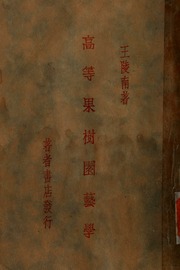 王陵南著
高等果樹園藝學
耕者書店發行